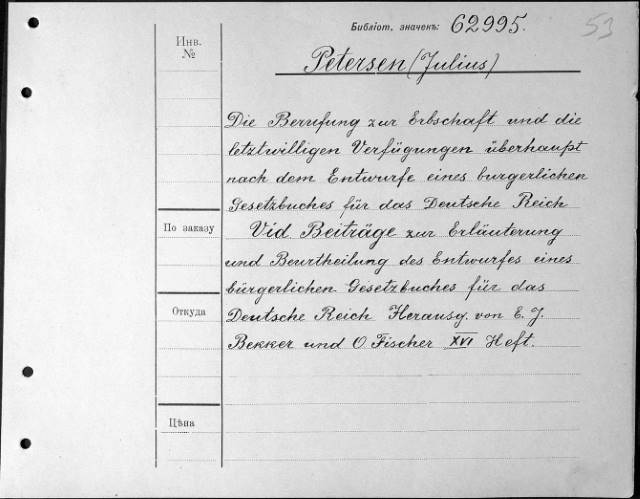 Библіот. значекъ: 62995.
53
Инв.
№
Petersen (Julius)
Die Berufung zur Erbschaft und die
letztwilligen Verfügungen überhaupt
nach dem Entwurfe eines burgerlichen
Gesetzbuches für das Deutsche Reich
По заказу
Vid. Beiträge zur Erläuterung
und Beurtheilung des Entwurfes eines
bürgerlichen Gesetzbuches für das
Откуда
Deutsche Reich Herausg. von E. J.
Bekker und O. Fischer XVI Heft.
Цѣна